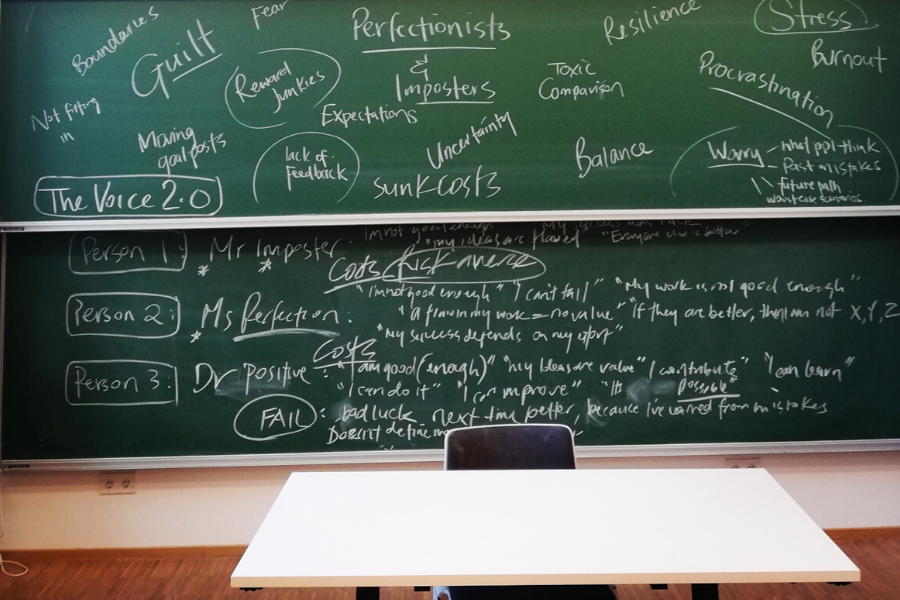 Boundaries
Guilt
Fear
Perfectionists
&
Imposters
Resilience
Stress
Burnout
Not fitting
in
Reward
Junkies
Expectations
Toxic
Comparison
Procrastination
Moving
goalposts
lack of
feedback
Uncertainty
Balance
Worry
what ppl think
Past mistakes
future path
worst case scenarios
The Voice 2.0
sunk costs
Person 1:
Mr Imposter:
I'm not good enough
"my ideas are flawed"
"Everyone else is better"
Costs
Risk averse
Person 2:
Ms Perfection:
"I'm not good enough" "I can't fail" "My work is not good enough"
"a flaw in my work = no value" "If they are better, then I am not X, Y, Z
"my success depends on my effort"
Costs
Person 3:
Dr Positive:
"I am good (enough)" "my Ideas are value" "I contribute" "I can learn"
"I can do it" "I can improve" "It's possible"
FAIL:
bad luck next time better, because I've learned from mistakes
Doesn't define me